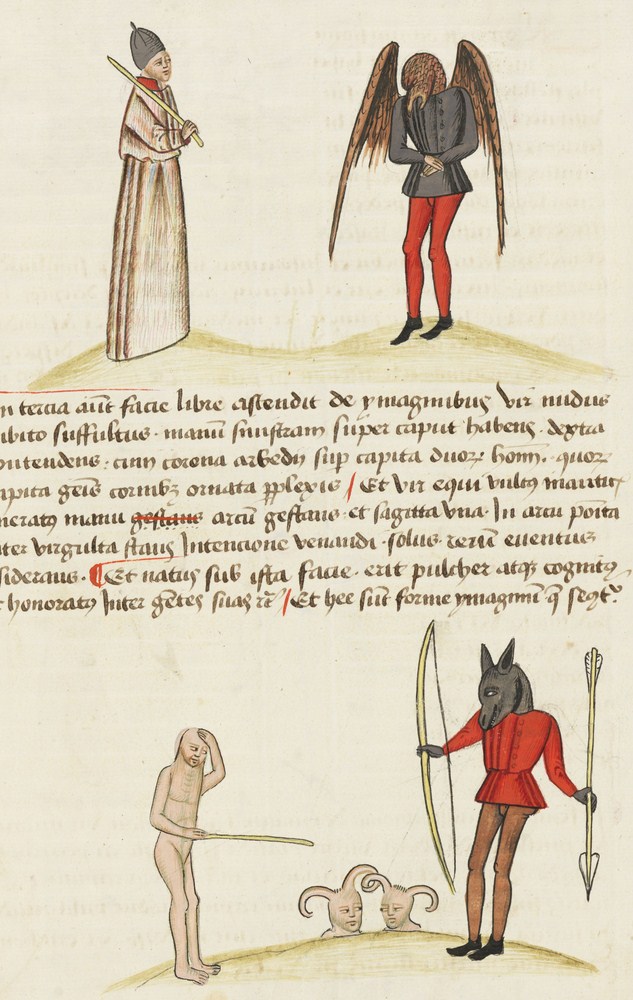 n tercia aut facie libre ascendit de ymaginibus Vir nudus
ubito suffultus · manu sinistram super caput habens · dextra
ontendens · cum corona super capita duorz homi · quorz
apita geis cornibz ornata pplexis / Et Vir equi vultu
nerato manu gestans arcu gestans · et sagitta vna · In arcu poita
ter virgulta stans Intencione venandi · solus · rerum euentus
siderans · ¶ Et natus sub ista facie · erit pulcher atqz cognitus
t honoratus Inter gentes suas rc / Et hee sut forme ymaginu q seqt